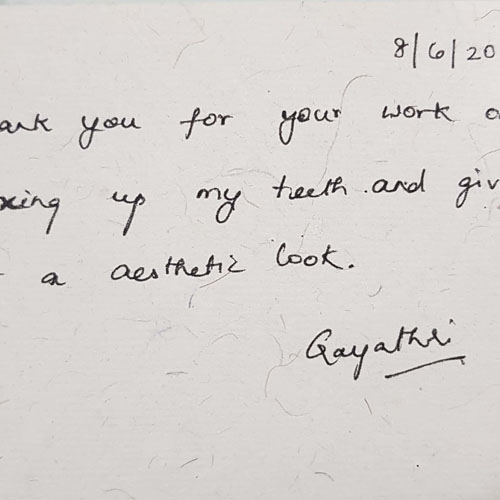 8/6/20
ank you for your work o
xing up my teeth and giv
a aesthetic look.
Gayathri